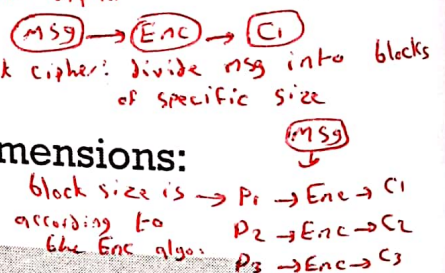 Msg → Enc → Ci
k cipher: divide msg into blocks
of specific size
Msg
mensions:
block size is → P1 → Enc → C1
according to P2 → Enc → C2
the Enc algo. P3 → Enc → C3